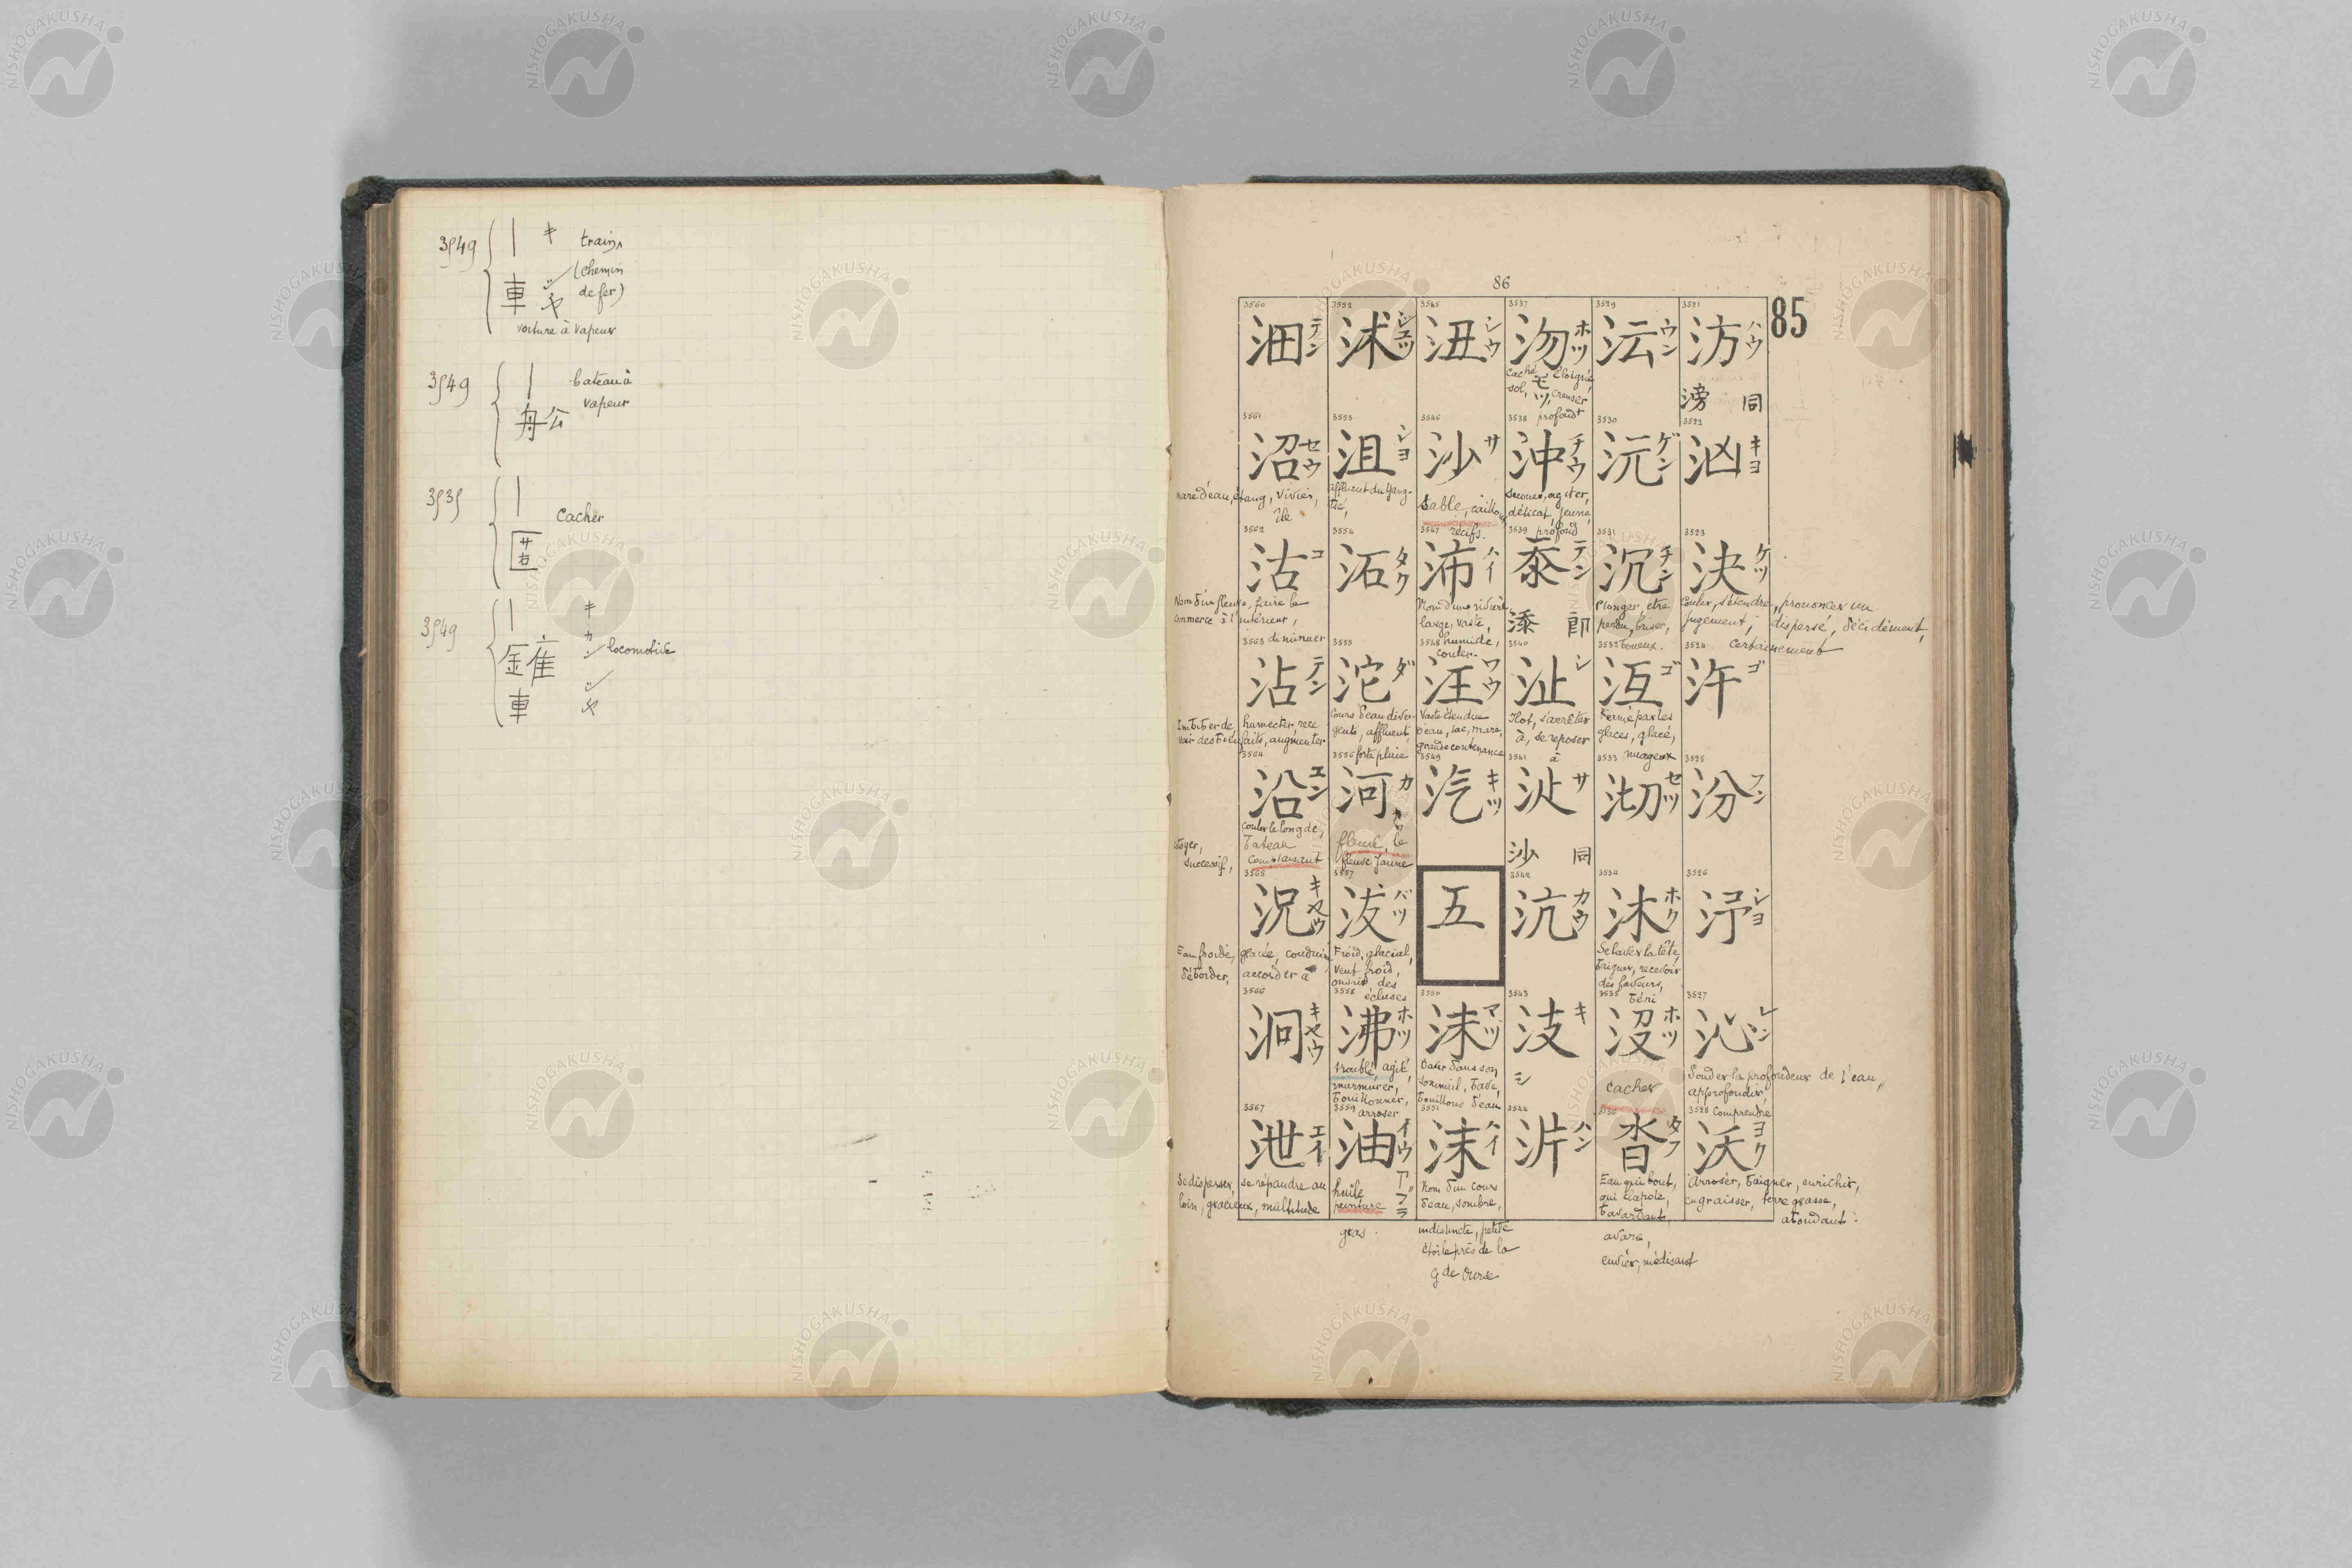 3549
| キ train
(chemin
de fer)
車 シヤ
voiture à vapeur
3549
| bateau à
vapeur
舩
3535
| cacher
匿
3549
| キ
カン locomotive
鑵
車 シヤ
86
85
3521
汸 ハウ
滂 同
3522
汹 キヨ
3523
決 ケツ
Couler, s'étendre, prononcer un
jugement, dispersé, décidément,
certainement
3524
汻 ゴ
3525
汾 フン
3526
汿 シヨ
3527
沁 シン
Sonder la profondeur de l'eau,
approfondir,
comprendre
3528
沃 ヨク
Arroser, baigner, enrichir,
engraisser, terre grasse,
abondant
3529
沄 ウン
3530
沅 ゲン
3531
沉 チン
Plonger, être
perdu, briser,
3532
沍 ゴ
Fermé par les
glaces, glacé,
nuageux
3533
沏 セツ
3534
沐 ホク
Se laver la tête,
baigner, recevoir
des faveurs,
béni
3535
沒 ホツ
cacher
3536
沓 タフ
Eau qui bout,
bavardant,
avare,
envier, médisant
3537
沕 ホツ
caché, éloigné,
モツ
sol, creuser
profond
3538
沖 チウ
secouer, agiter,
délicat, jeune,
profond
3539
沗 テン
添 即
3540
沚 シ
Ilot, s'arrêter
à, se reposer
à
3541
沚 サ
沙 同
3542
沆 カウ
3543
汥 キ
シ
3544
沜 ハン
3545
沑 シウ
3546
沙 サ
Sable, cailloux
récifs.
3547
沛 ハイ
Nom d'une rivière
large, vaste,
humide,
couler.
3548
汪 ワウ
Vaste étendue
d'eau, lac, mare,
grande contenance
3549
汽 キツ
五
3550
沫 マツ
Baver dans son
sommeil, bave,
bouillons d'eau
3551
沬 ハイ
Nom d'un cours
d'eau, sombre,
indistincte, petite
étoile près de la
Gde Ourse
3552
沭 シユツ
3553
沮 シヨ
affluent du Yang-
tsé,
3554
沰 タク
3555
沱 ダ
Cours d'eau diver-
gents, affluent
forte pluie
3556
河 カ
カワ
fleuve, le
fleuve jaune
3557
沷 バツ
Froid, glacial,
vent froid,
ouvrir des
écluses
3558
沸 ホツ
troublé, agité,
murmurer,
bouillonner,
arroser
3559
油 イウ
アブラ
huile
peinture
gras
3560
沺 テン
3561
沼 セウ
mare d'eau, étang, vivier,
île
3562
沽 コ
Nom d'un fleuve, faire le
commerce à l'intérieur,
diminuer
3563
沾 テン
Imbiber de, humecter, rece
voir des bienfaits, augmenter
3564
沿 エン
couler le long de,
bateau
successif, complaisant
3565
況 キヤウ
Eau froide, glacée, conduire
déborder, accorder à
3566
泂 キヤウ
3567
泄 エイ
Se disperser, se répandre au
loin, gracieux, multitude